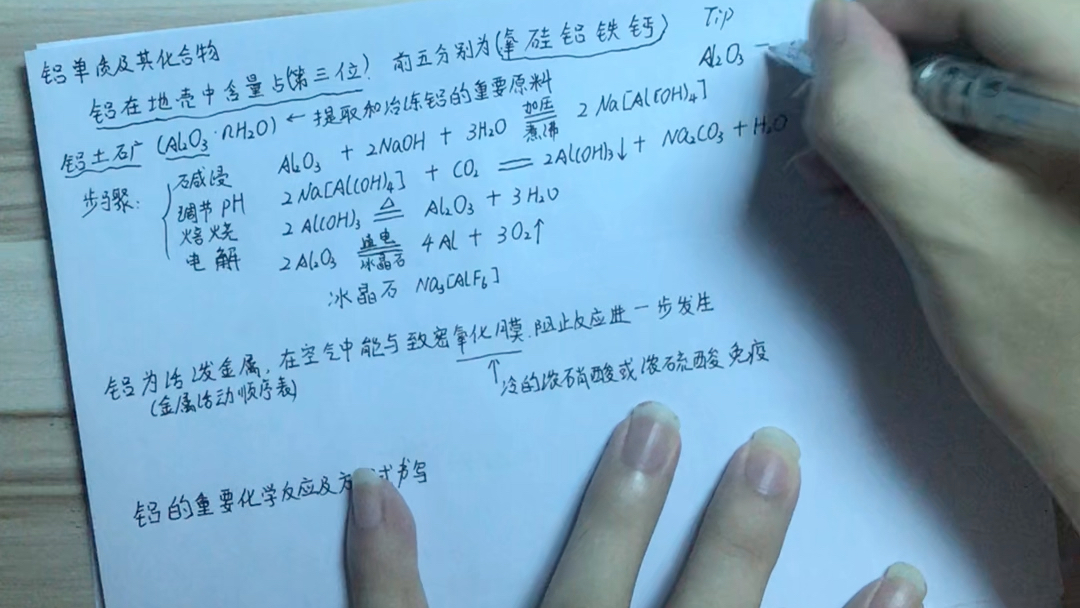 铝单质及其化合物
铝在地壳中含量占(第三位)! 前五分别为(氧 硅 铝 铁 钙)
铝土矿 (Al₂O₃·nH₂O) ← 提取和冶炼铝的重要原料
步骤:
碱浸 Al₂O₃ + 2NaOH + 3H₂O 加压 煮沸 2Na[Al(OH)₄]
调节PH 2Na[Al(OH)₄] + CO₂ = 2Al(OH)₃↓ + Na₂CO₃ + H₂O
焙烧 2Al(OH)₃ △ Al₂O₃ + 3H₂O
电解 2Al₂O₃ 通电 冰晶石 4Al + 3O₂↑
冰晶石 Na₃[AlF₆]
铝为活泼金属,在空气中能与致密氧化膜.阻止反应进一步发生
(金属活动顺序表)
↑冷的浓硝酸或浓硫酸免疫
铝的重要化学反应及方 式书写
Tip
Al₂O₃